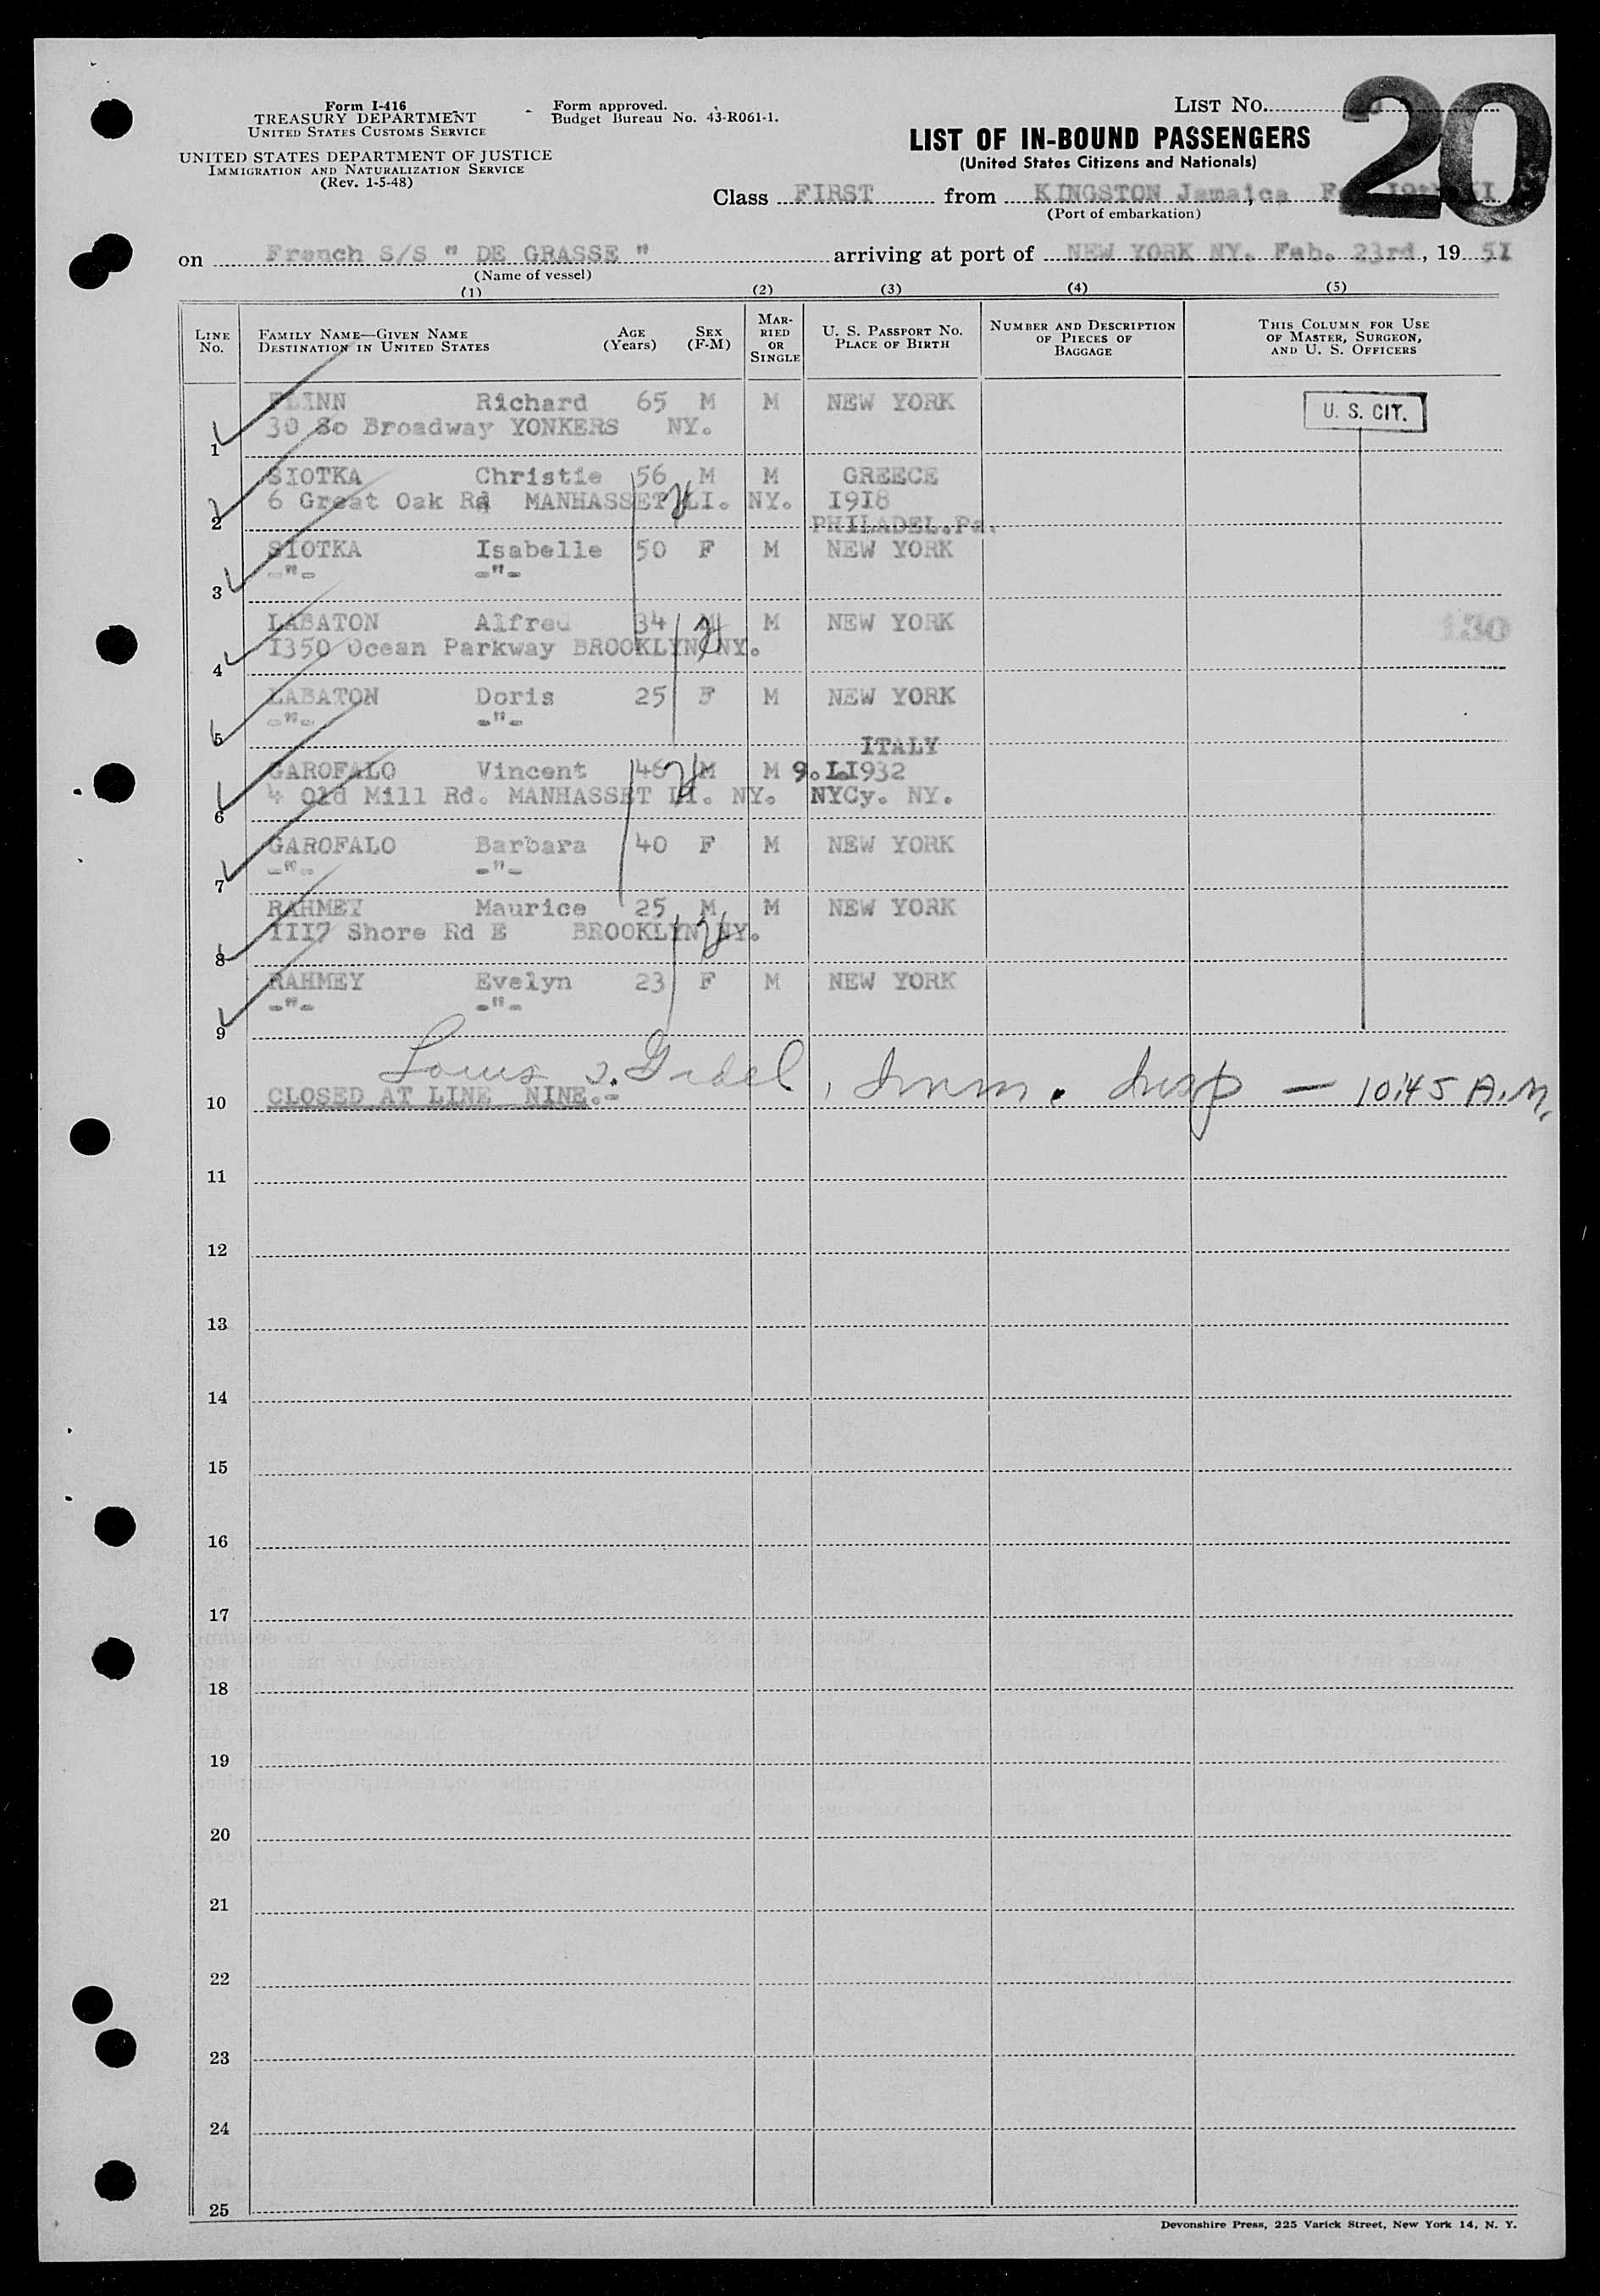 Form I-416
TREASURY DEPARTMENT
UNITED STATES CUSTOMS SERVICE
UNITED STATES DEPARTMENT OF JUSTICE
IMMIGRATION AND NATURALIZATION SERVICE
(Rev. 1-5-48)
Form approved.
Budget Bureau No. 43-R061-1.
LIST No. 20
LIST OF IN-BOUND PASSENGERS
(United States Citizens and Nationals)
Class FIRST from KINGSTON Jamaica,
(Port of embarkation)
on French S/S " DE GRASSE " arriving at port of NEW YORK NY. Feb. 23rd, 19 5I
(Name of vessel)
(1) (2) (3) (4) (5)
LINE No. FAMILY NAME—GIVEN NAME DESTINATION IN UNITED STATES AGE (Years) SEX (F-M) MARRIED OR SINGLE U. S. PASSPORT NO. PLACE OF BIRTH NUMBER AND DESCRIPTION OF PIECES OF BAGGAGE THIS COLUMN FOR USE OF MASTER, SURGEON, AND U. S. OFFICERS
FLINN Richard 65 M M NEW YORK U. S. CIT.
1 30 So Broadway YONKERS NY.
SIOTKA Christie 56 M M GREECE
2 6 Great Oak Rd MANHASSET LI. NY. I9I8
PHILADEL.Pa.
SIOTKA Isabelle 50 F M NEW YORK
3 -"- -"-
LABATON Alfred 34 M M NEW YORK 130
4 I350 Ocean Parkway BROOKLYN NY.
LABATON Doris 25 F M NEW YORK
5 -"- -"-
ITALY
GAROFALO Vincent 46 M M 9.I.I932
6 4 Old Mill Rd. MANHASSET LI. NY. NYCy. NY.
GAROFALO Barbara 40 F M NEW YORK
7 -"- -"-
RAHMEY Maurice 25 M M NEW YORK
8 III7 Shore Rd E BROOKLYN NY.
RAHMEY Evelyn 23 F M NEW YORK
9 -"- -"-
Louis Imm. Insp — 10:45 A.M.
10 CLOSED AT LINE NINE.-
11
12
13
14
15
16
17
18
19
20
21
22
23
24
25
Devonshire Press, 225 Varick Street, New York 14, N. Y.